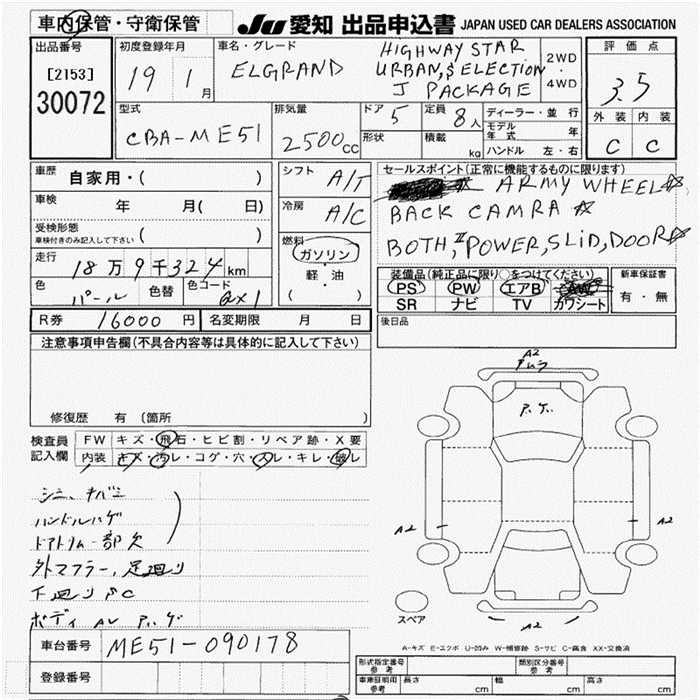 車内保管・守衛保管
JU 愛知 出品申込書 JAPAN USED CAR DEALERS ASSOCIATION
出品番号
[2153]
30072
初度登録年月
19 1月
車名・グレード
ELGRAND
HIGHWAY STAR
URBAN, SELECTION
J PACKAGE
2WD
・
4WD
評価点
3.5
外装 内装
C C
型式
CBA-ME51
排気量
2500cc
ドア 5
形状
定員 8人
積載 kg
ディーラー・並行
モデル年式 年
ハンドル 左・右
車歴
自家用・( )
車検 年 月( 日)
受検形態
車検付きのみ記入して下さい ( )
走行
18万9千324km
色 パール 色替 色コード QX1
シフト A/T
冷房 A/C
燃料
ガソリン
軽・油
( )
セールスポイント(正常に機能するものに限ります)
☆ ARMY WHEEL☆
BACK CAMRA ☆
BOTH, POWER, SLID, DOOR☆
装備品(純正品に限り○をつけてください)
PS PW エアB
SR ナビ TV カワシート
新車保証書
有・無
R券 16000円 名変期限 月 日
後日品
注意事項申告欄(不具合内容等は具体的に記入して下さい)
修復歴 有(箇所 )
検査員記入欄
FW キズ・飛石・ヒビ割・リペア跡・X要
内装 キズ・汚レ・コゲ・穴・スレ・キレ・破レ
シミ、
ハンドルハゲ
ドアトリム一部欠
外マフラー、足廻り
下廻り
ボディ
A2
A2
A2
A2
スペア
A-キズ E-エクボ U-凹み W-補修跡 S-サビ C-腐食 XX-交換済
車台番号 ME51-090178
登録番号
形式指定番号 参考
類別区分番号 参考
車庫証明用 参考 長さ cm 幅 cm 高さ cm